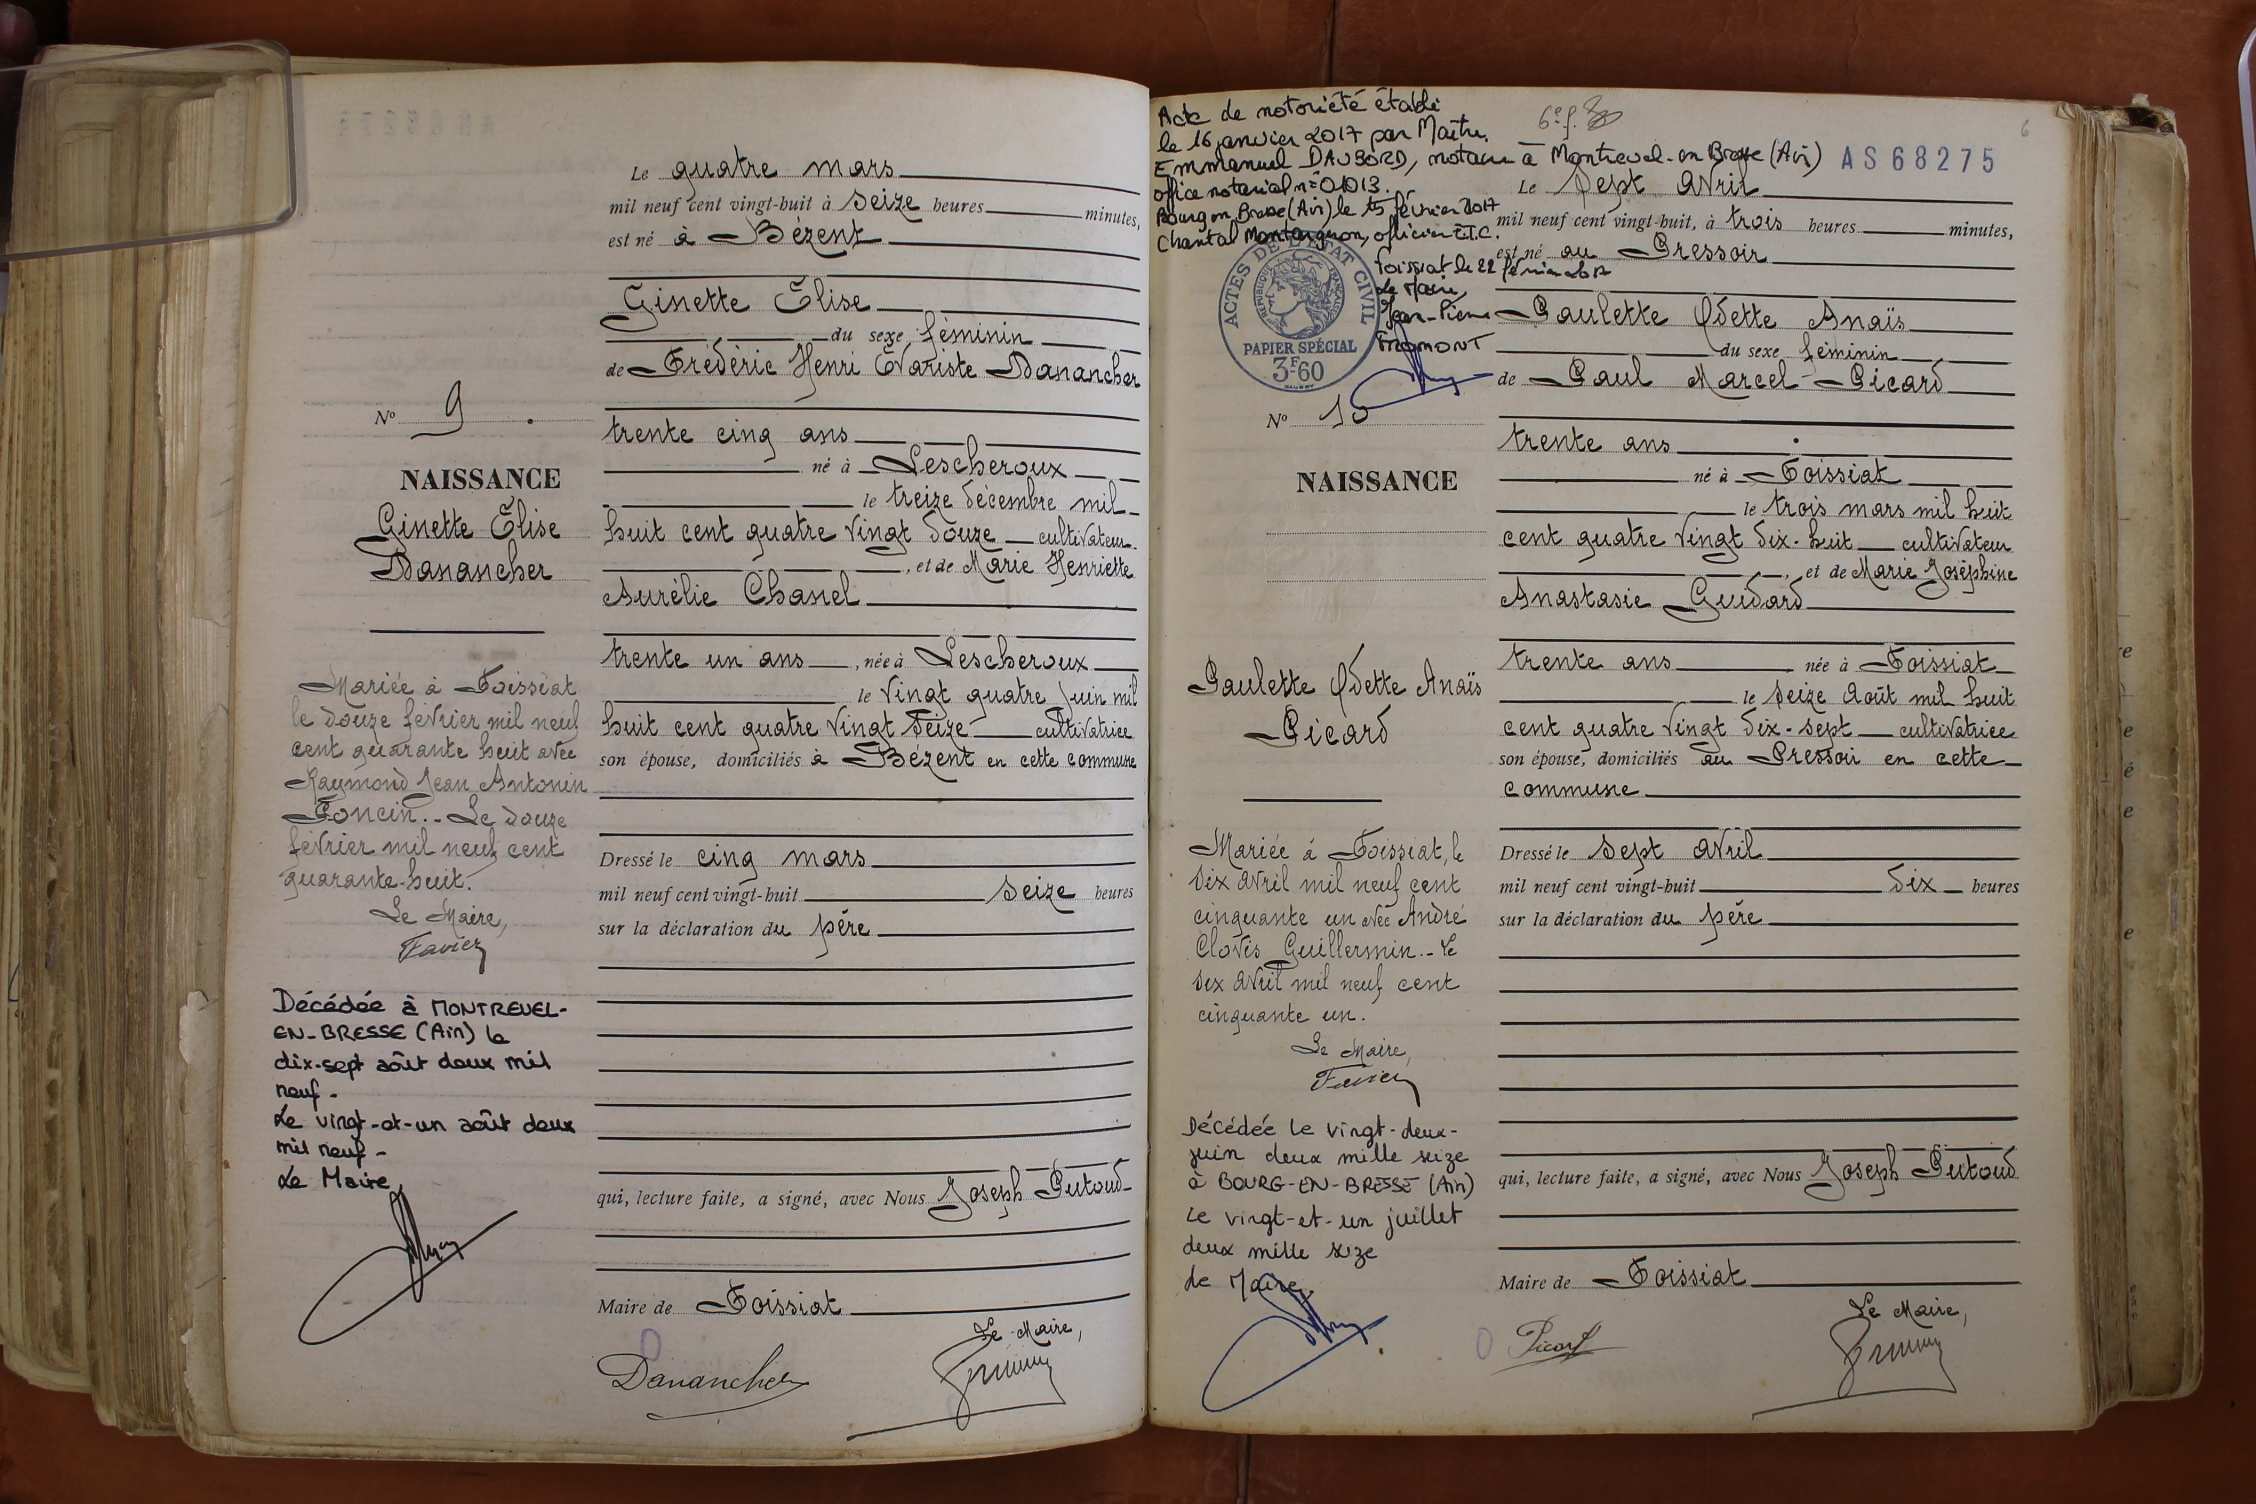 Le quatre mars
mil neuf cent vingt-huit à seize heures minutes,
est né à Bézent
Ginette Elise
du sexe féminin
de Frédéric Henri Evariste Danancher
N° 9
trente cinq ans
né à Lescheroux
le treize décembre mil
huit cent quatre vingt douze cultivateur
, et de Marie Henriette
Aurélie Chanel
NAISSANCE
Ginette Elise
Danancher
trente un ans , née à Lescheroux
le vingt quatre juin mil
huit cent quatre vingt seize cultivatrice
son épouse, domiciliés à Bézent en cette commune
Dressé le cinq mars
mil neuf cent vingt-huit seize heures
sur la déclaration du père
qui, lecture faite, a signé, avec Nous Joseph Putoud
Maire de Foissiat
Le Maire,
Danancher
Mariée à Foissiat
le douze février mil neuf
cent quarante huit avec
Raymond Jean Antonin
Poncin.- Le douze
février mil neuf cent
quarante-huit.
Le Maire,
Favier
Décédée à MONTREVEL-
EN-BRESSE (Ain) le
dix-sept août deux mil
neuf -
Le vingt-et-un août deux
mil neuf -
Le Maire,
Acte de notoriété établi
le 16 janvier 2017 par Maître
Emmanuel DAUBORD, notaire à Montrevel-en Bresse (Ain)
office notarial n° 01013.
Bourg en Bresse (Ain) le 15 février 2017
Chantal Montangnon, officier E.C.
Foissiat le 22 février 2017
Le Maire,
Jean-Pierre
FROMONT
6e f.
6
AS68275
ACTES DE L'ETAT CIVIL
REPUBLIQUE FRANÇAISE
PAPIER SPÉCIAL
3F60
Le sept avril
mil neuf cent vingt-huit, à trois heures minutes,
est né au Pressoir
Paulette Odette Anaïs
du sexe féminin
de Paul Marcel Picard
N° 10
trente ans
né à Foissiat
le trois mars mil huit
cent quatre vingt dix-huit cultivateur
, et de Marie Joséphine
Anastasie Guidard
NAISSANCE
Paulette Odette Anaïs
Picard
trente ans née à Foissiat
le seize août mil huit
cent quatre vingt dix-sept cultivatrice
son épouse, domiciliés au Pressoir en cette
commune
Dressé le sept avril
mil neuf cent vingt-huit dix heures
sur la déclaration du père
qui, lecture faite, a signé, avec Nous Joseph Putoud
Maire de Foissiat
Le Maire,
Picard
Mariée à Foissiat, le
dix avril mil neuf cent
cinquante un avec André
Clovis Guillermin.- Le
dix avril mil neuf cent
cinquante un.
Le Maire,
Favier
Décédée le vingt-deux-
juin deux mille seize
à BOURG-EN-BRESSE (Ain)
Le vingt-et-un juillet
deux mille seize
Le Maire,